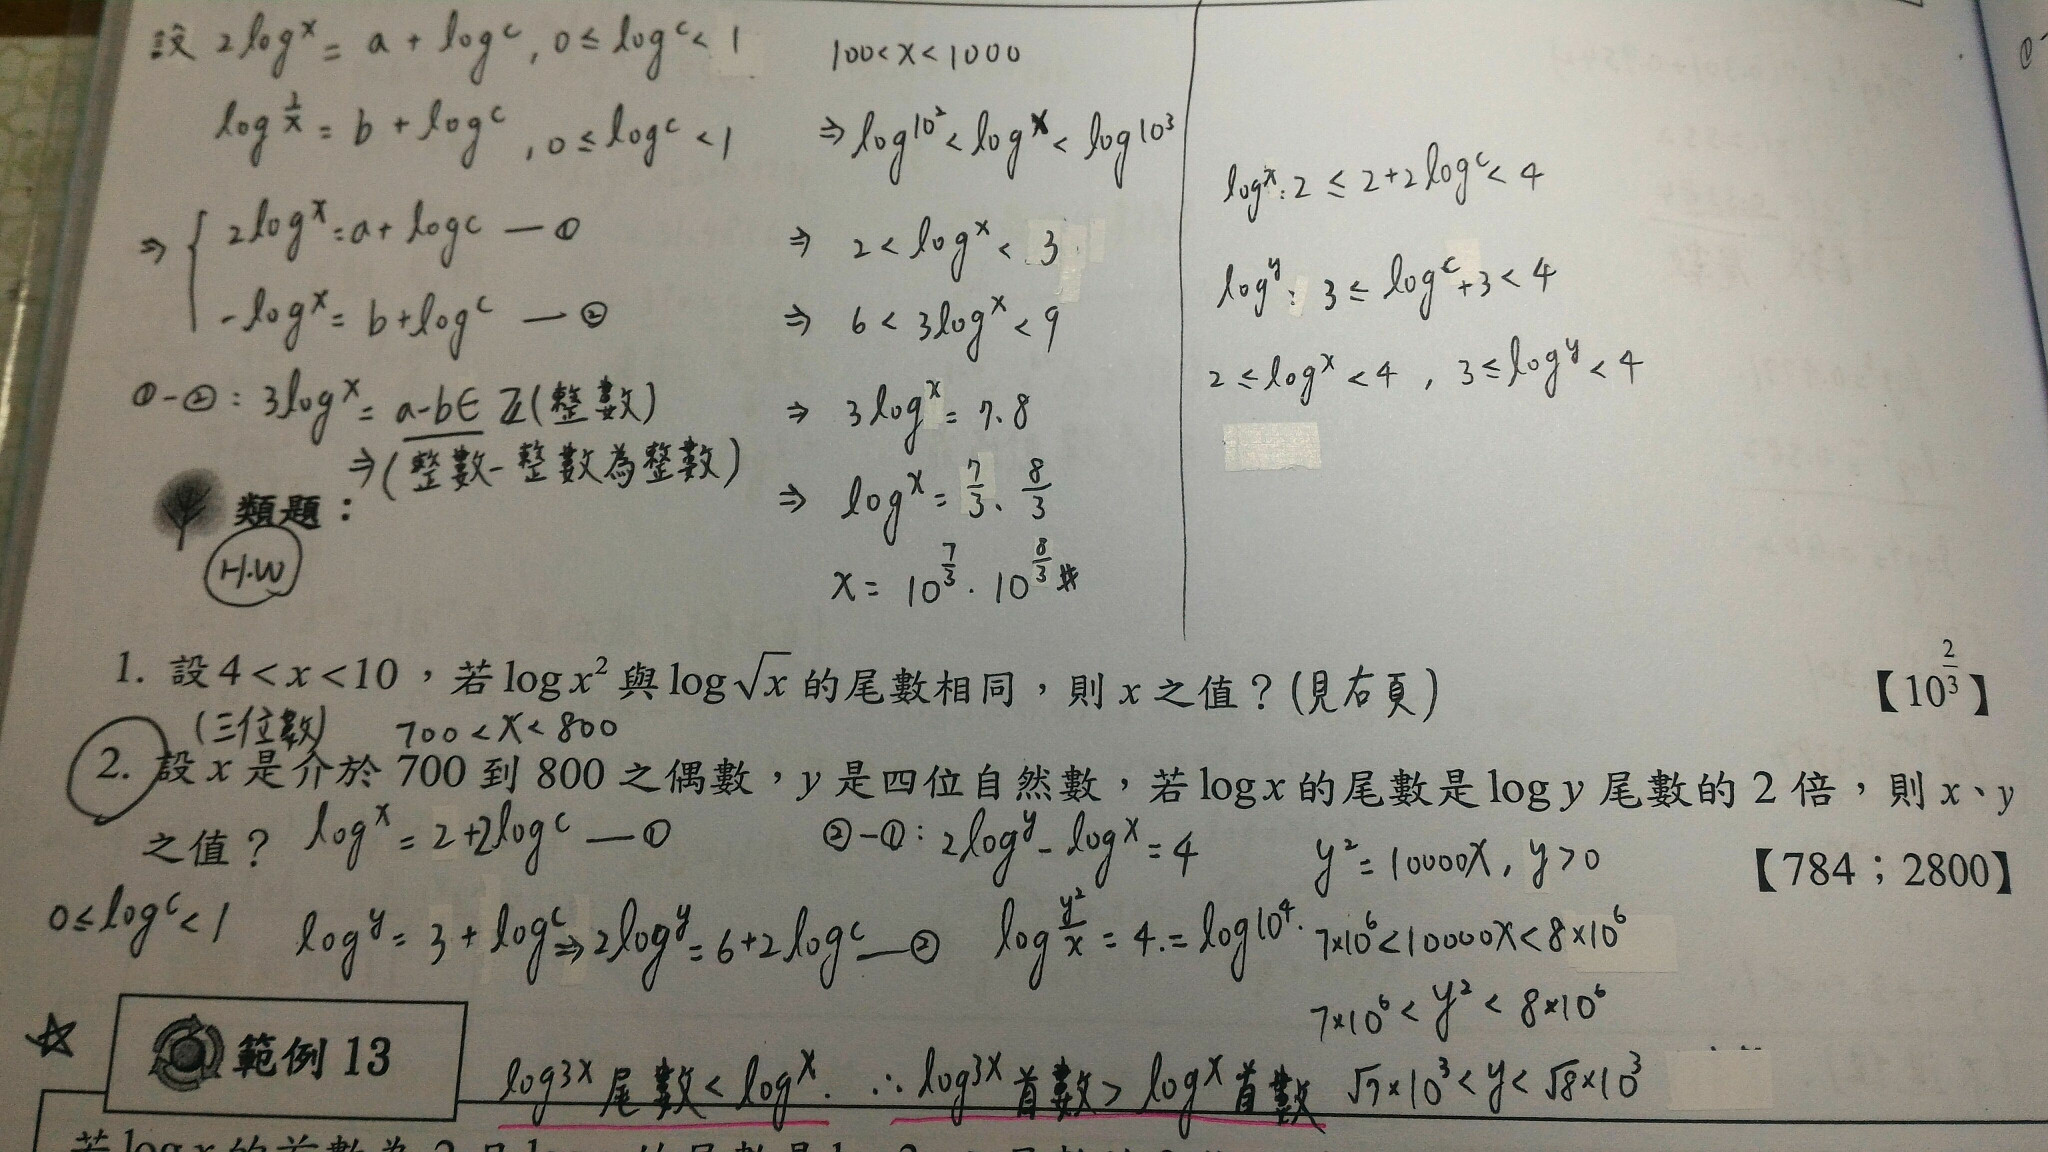 設 2logx = a + logc , 0 ≤ logc < 1
log 1/x = b + logc , 0 ≤ logc < 1
⇒ { 2logx = a + logc — ①
-logx = b + logc — ②
①-② : 3logx = a-b ∈ Z (整數)
⇒ (整數-整數為整數)
100 < x < 1000
⇒ log10² < logx < log10³
⇒ 2 < logx < 3
⇒ 6 < 3logx < 9
⇒ 3logx = 7、8
⇒ logx = 7/3、8/3
x = 10^(7/3)、10^(8/3)
logx : 2 ≤ 2+2logc < 4
logy : 3 ≤ logc+3 < 4
2 ≤ logx < 4 , 3 ≤ logy < 4
類題:
H.W
1. 設 4 < x < 10,若 log x² 與 log √x 的尾數相同,則 x 之值?(見右頁) 【10^(2/3)】
(三位數) 700 < x < 800
2. 設 x 是介於 700 到 800 之偶數,y 是四位自然數,若 log x 的尾數是 log y 尾數的 2 倍,則 x、y
之值? 【784;2800】
logx = 2+2logc — ①
0 ≤ logc < 1
logy = 3 + logc ⇒ 2logy = 6+2logc — ②
②-① : 2logy - logx = 4
log y²/x = 4 = log10⁴
y² = 10000x , y > 0
7×10⁶ < 10000x < 8×10⁶
7×10⁶ < y² < 8×10⁶
√7×10³ < y < √8×10³
☆ 範例 13
log3x 尾數 < logx. ∴ log3x 首數 > logx 首數